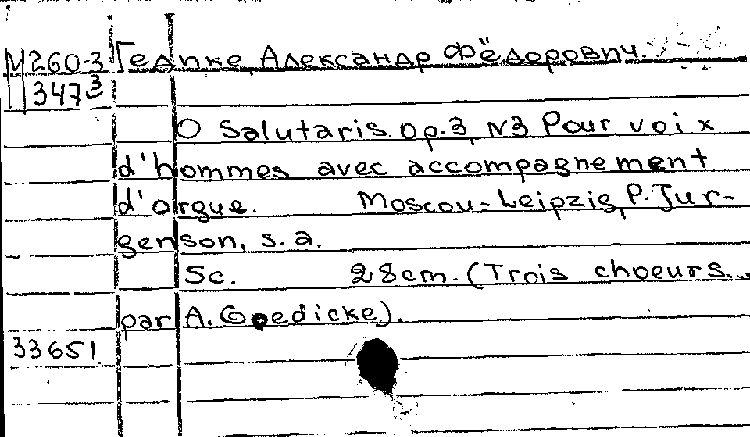 М260-3 Гедике, Александр Фёдорович.
347³
O Salutaris. op.3, N3 Pour voix
d'hommes avec accompagnement
d'orgue. Moscou-Leipzig, P. Jur-
genson, s.a.
5c. 28cm. (Trois choeurs
par A. Goedicke).
33651